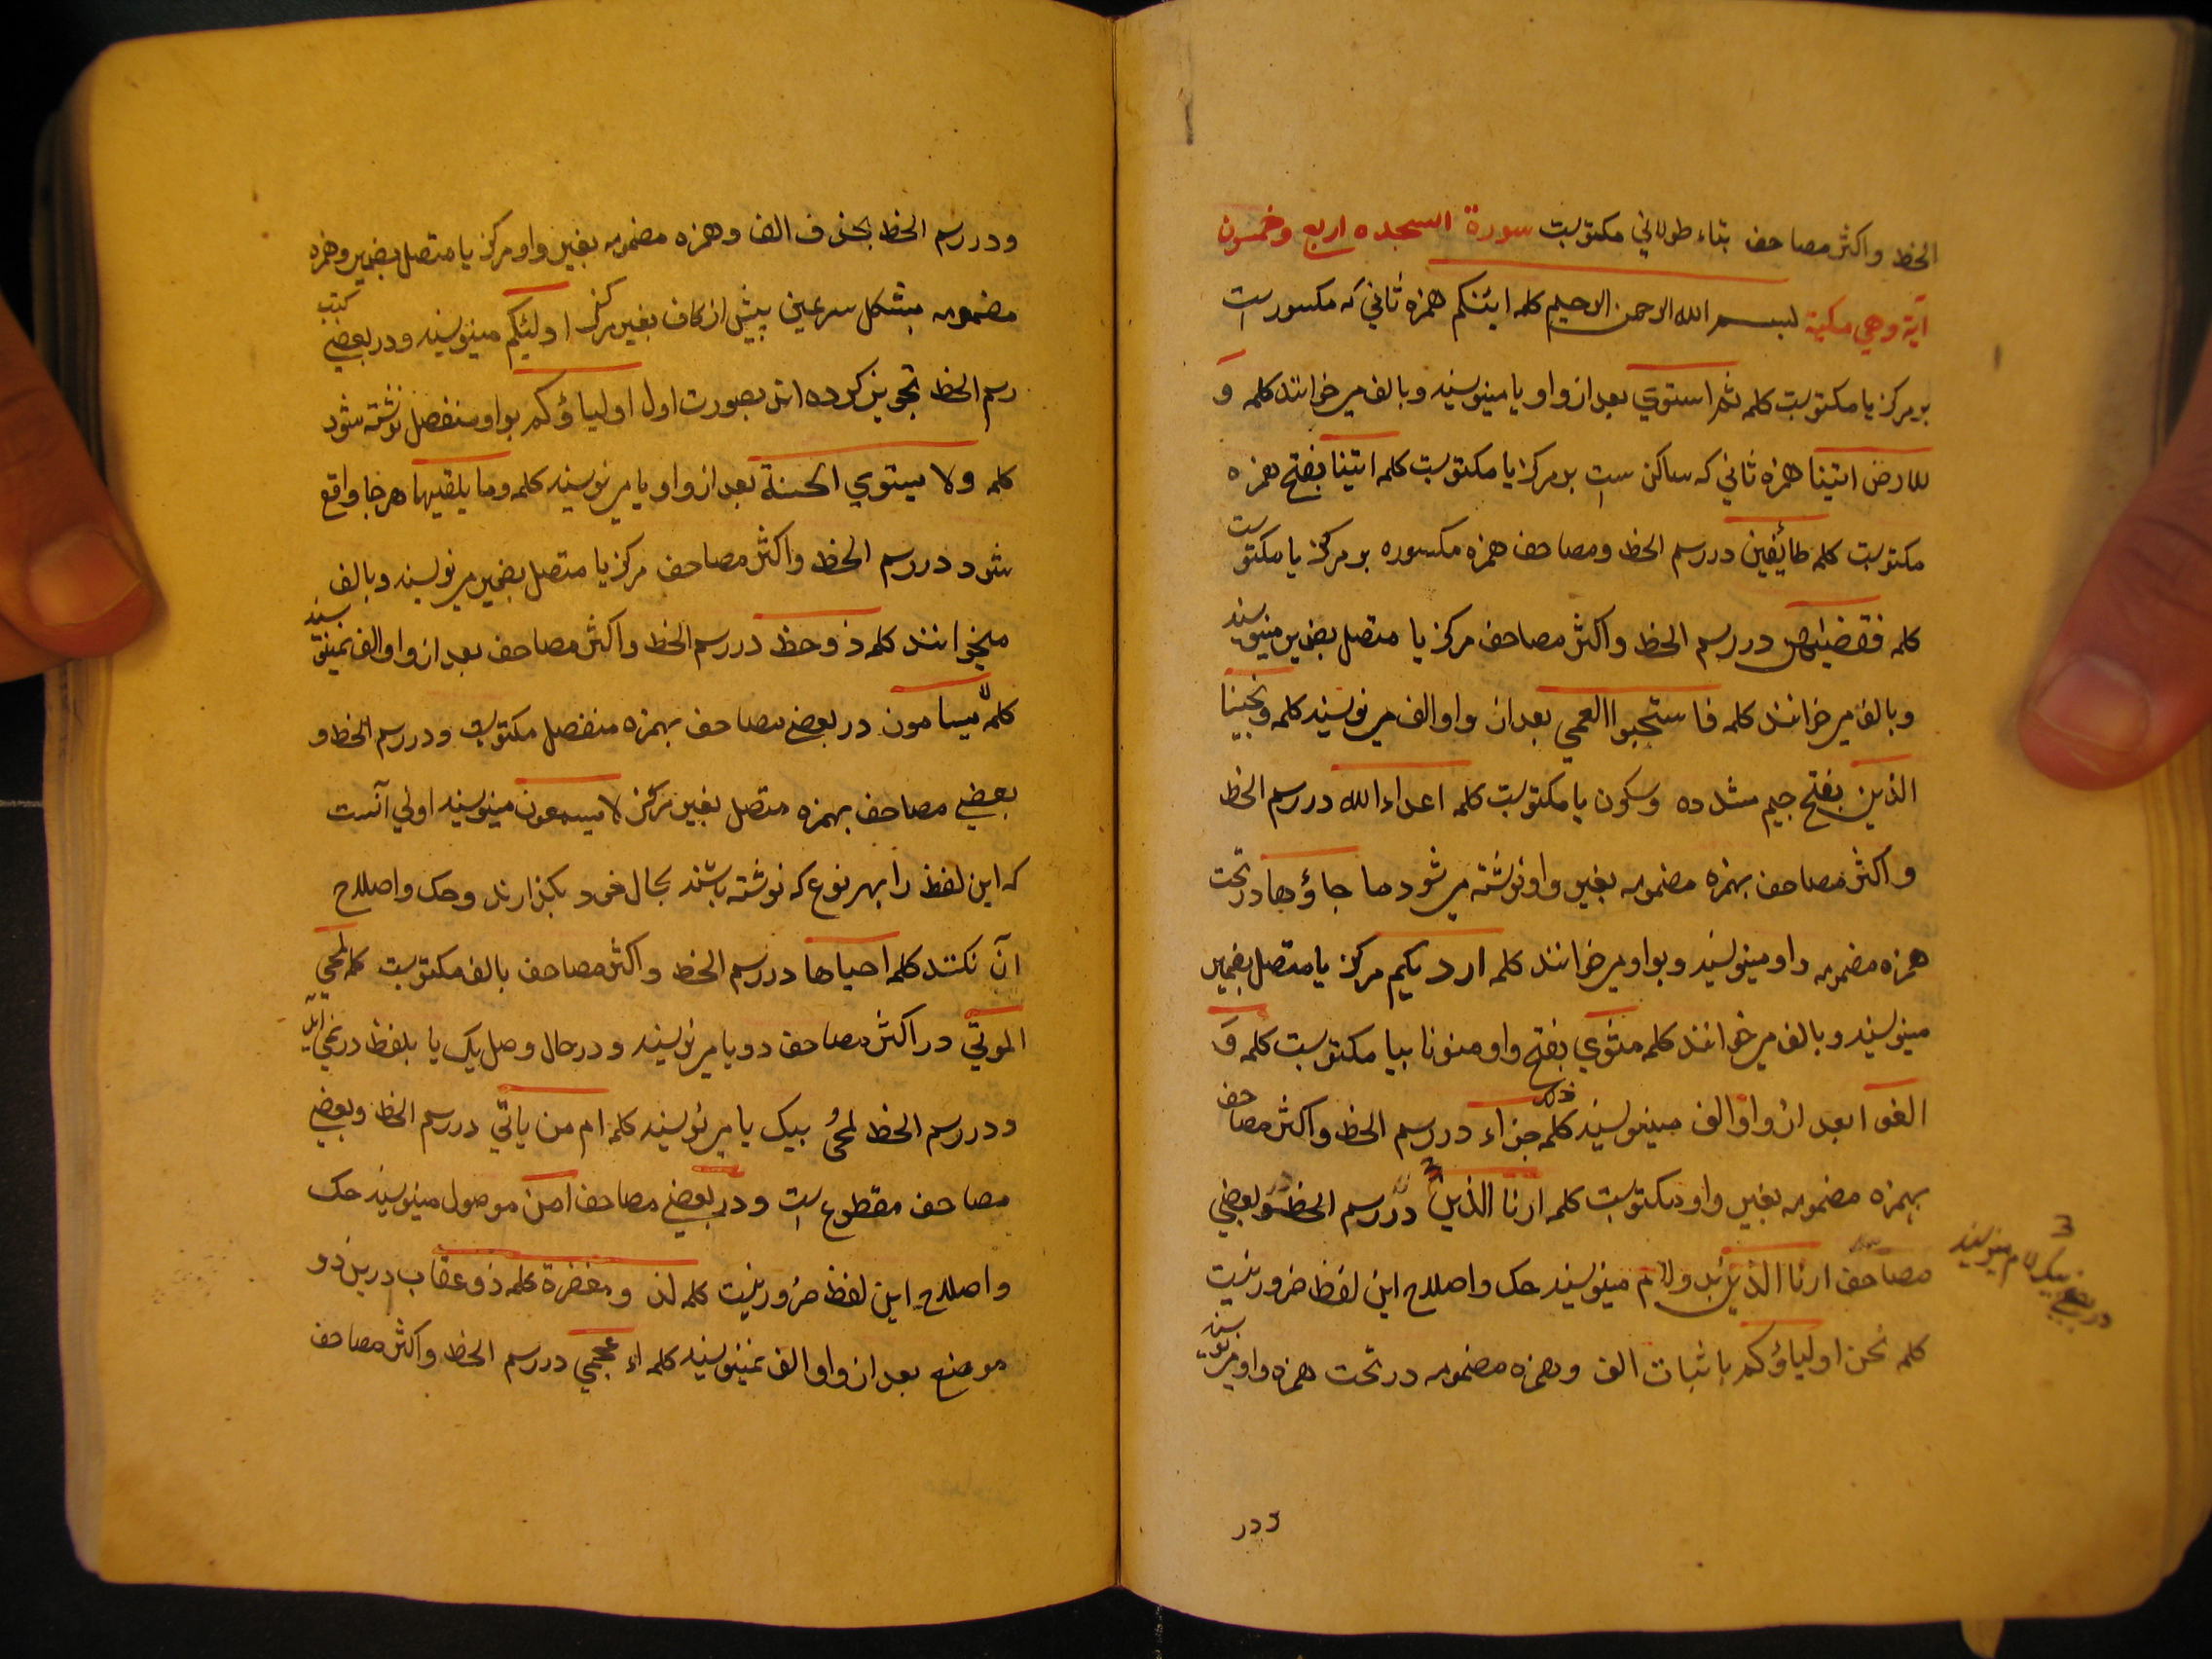 الخط واکثر مصاحف بتاء طولانی مکتوبست سورة السجده اربع وخمسون
آیة وهي مکیة بسم الله الرحمن الرحیم کلمه ائنکم همزه ثانی که مکسورست
بر مرکز یا مکتوبست کلمه ثم استوی بعد از واو یا مینویسند و بالف میخوانند کلمه و
للارض ائتیا همزه ثانی که ساکن ست بر مرکز یا مکتوبست کلمه اتینا بفتح همزه
مکتوبست کلمه طائعین در رسم الخط ومصاحف همزه مکسوره بر مرکز یا مکتوبست
کلمه فقضیهن در رسم الخط واکثر مصاحف مرکز یا متصل بضمیر مینویسند
و بالف میخوانند کلمه فاستحبوا العمی بعد از واو الف مینویسند کلمه ونجینا
الذین بفتح جیم مشدده وسکون یا مکتوبست کلمه اعداء الله در رسم الخط
واکثر مصاحف بهمزه مضمومه بغیر واو نوشته میشود ما جاؤها در تحت
همزه مضمومه واو مینویسند وبواو میخوانند کلمه اردیکم مرکز یا متصل بضمیر
مینویسند و بالف میخوانند کلمه مثوی بفتح واو منونا بیا مکتوبست کلمه و
الغوا بعد از واو الف مینویسند کلمه ذلک جزاء در رسم الخط واکثر مصاحف
بهمزه مضمومه بغیر واو مکتوبست کلمه ارنا الذین در رسم الخط وبعضی
مصاحف ارنا الذین بدولام مینویسند حک واصلاح این لفظ ضرور نیست
در بعضی بیک لام مینویسند
کلمه نحن اولیاؤکم باثبات الف وهمزه مضمومه در تحت همزه واو مینویسند
ودر
ودر رسم الخط بحذف الف وهمزه مضمومه بغیر واو مرکز یا متصل بضمیر وهمزه
مضمومه بشکل سرعین پیش از کاف بغیر مرکز اولیئکم مینویسند ودر بعضی کتب
رسم الخط تجویز کرده اند بصورت اول اولیاؤکم بواو منفصل نوشته شود
کلمه ولا یستوی الحسنة بعد از واو یا مینویسند کلمه وما یلقیها هرجا واقع
شود در رسم الخط واکثر مصاحف مرکز یا متصل بضمیر مینویسند وبالف
میخوانند کلمه ذو حظ در رسم الخط واکثر مصاحف بعد از واو الف نمینویسند
کلمه لا یسامون در بعضی مصاحف بهمزه منفصل مکتوبست ودر رسم الخط و
بعضی مصاحف بهمزه متصل بغیر مرکز لا یسمعون مینویسند اولی آنست
که این لفظ را بهر نوع که نوشته باشند بحال خود بکذارند وحک واصلاح
آن نکنند کلمه احیاها در رسم الخط واکثر مصاحف بالف مکتوبست کلمه لمحی
الموتی در اکثر مصاحف دو یا مینویسند ودر حال وصل یک یا بلفظ در نمی آید
ودر رسم الخط لمحی بیک یا مینویسند کلمه ام من یاتی در رسم الخط وبعضی
مصاحف مقطوع ست ودر بعضی مصاحف امن موصول مینویسند حک
واصلاح این لفظ ضرور نیست کلمه لذو مغفرة کلمه ذو عقاب درین دو
موضع بعد از واو الف نمینویسند کلمه اءعجمی در رسم الخط واکثر مصاحف